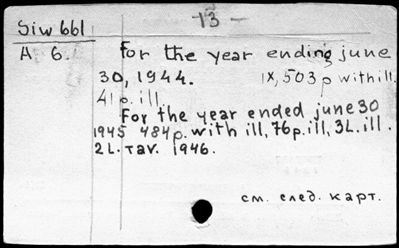 - 13 -
Siw 661
A 6. For the year ending june
30, 1944. IX, 503 p with ill.
41 p. ill.
For the year ended june 30
1945 484 p. with ill, 76 p. ill, 3 L. ill.
2 L. тав. 1946.
см. след. карт.